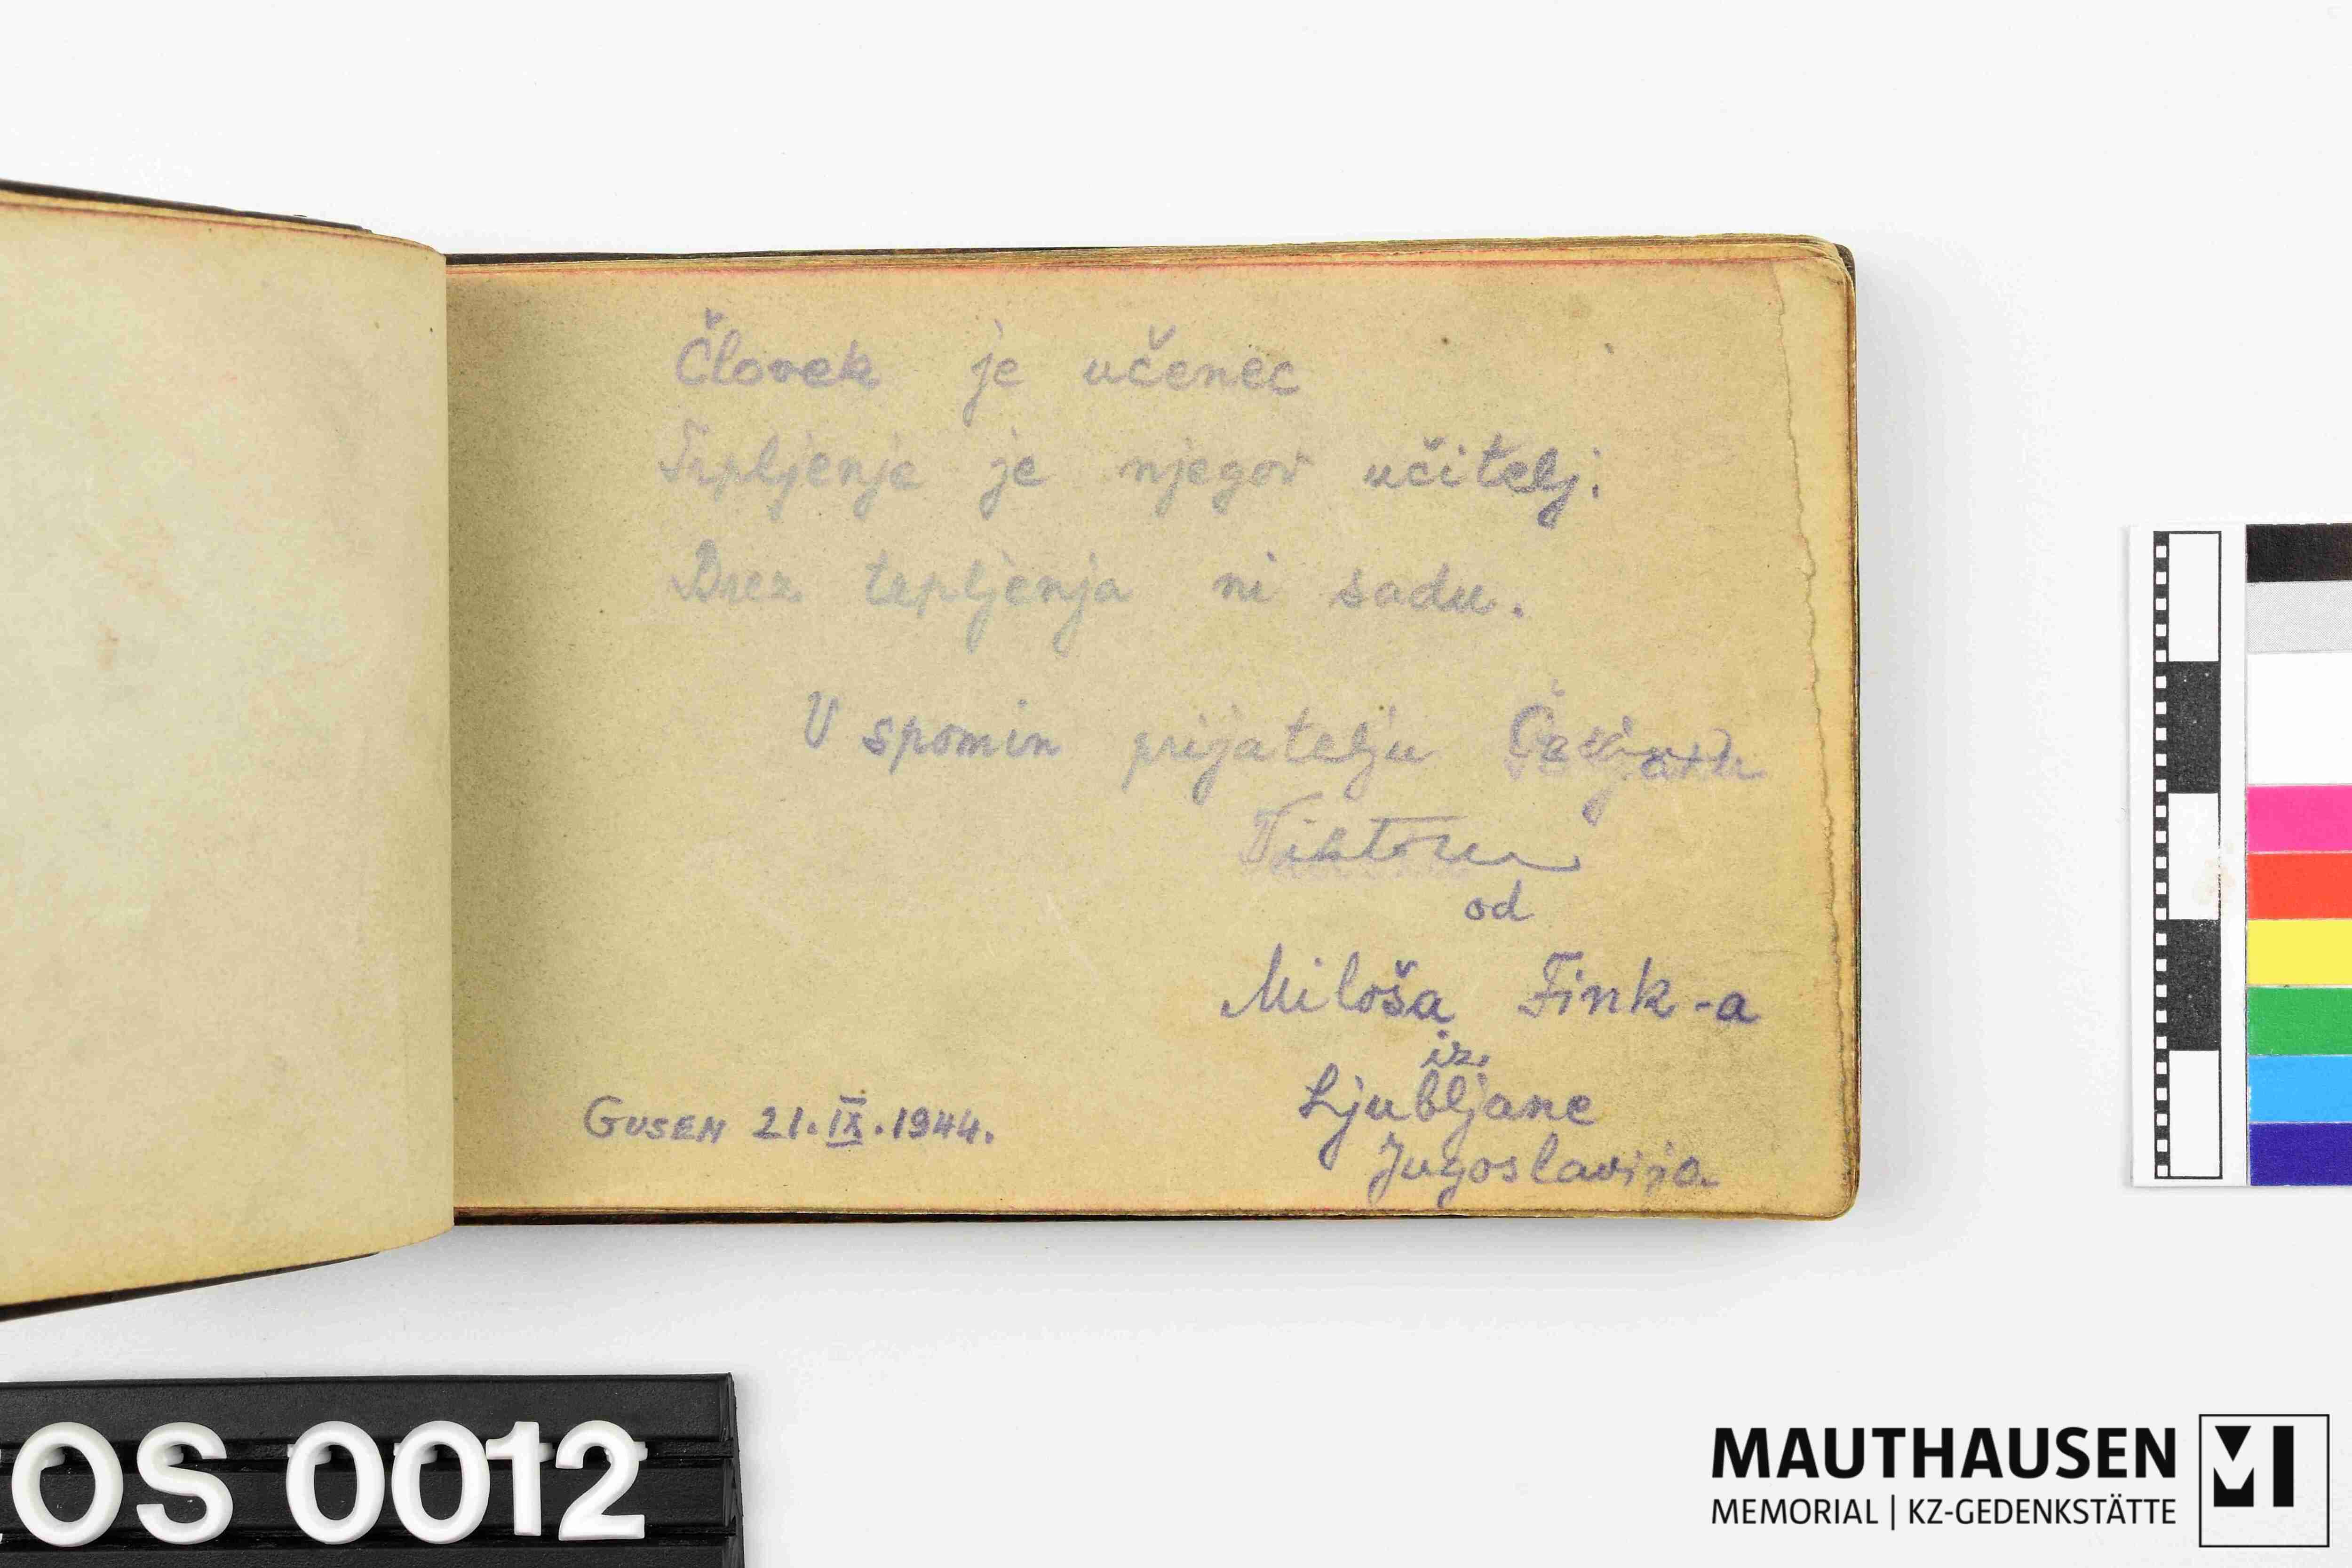 Človek je učenec
Trpljenje je njegov učitelj:
Brez trpljenja ni sadu.
V spomin prijatelju
Viktoru
od
Miloša Fink-a
iz
Ljubljane
Jugoslavija.
GUSEN 21.IX.1944.
OS 0012
MAUTHAUSEN
MEMORIAL | KZ-GEDENKSTÄTTE